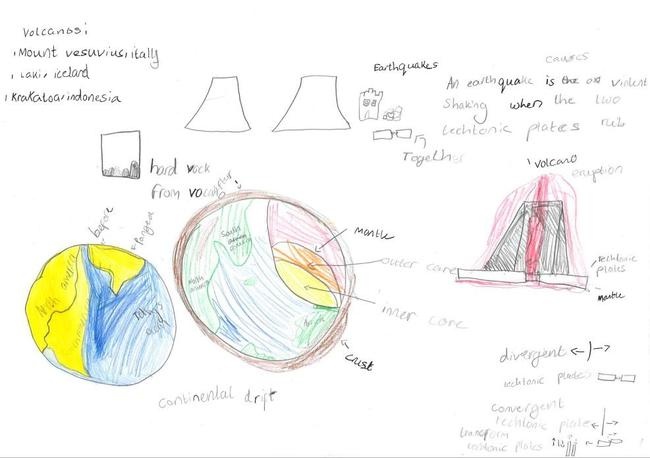 Volcanos:
Mount vesuvius, italy
Laki, iceland
Krakatoa, indonesia
Earthquakes
causes
An earthquake is the violent
Shaking when the two
techtonic plates rub
Together
hard rock
from
before
Pangea
South
North
mantle
outer core
inner core
crust
continental drift
Volcano
eruption
techtonic
plates
mantle
divergent
techtonic plates
convergent
techtonic plate
transform
techtonic plates